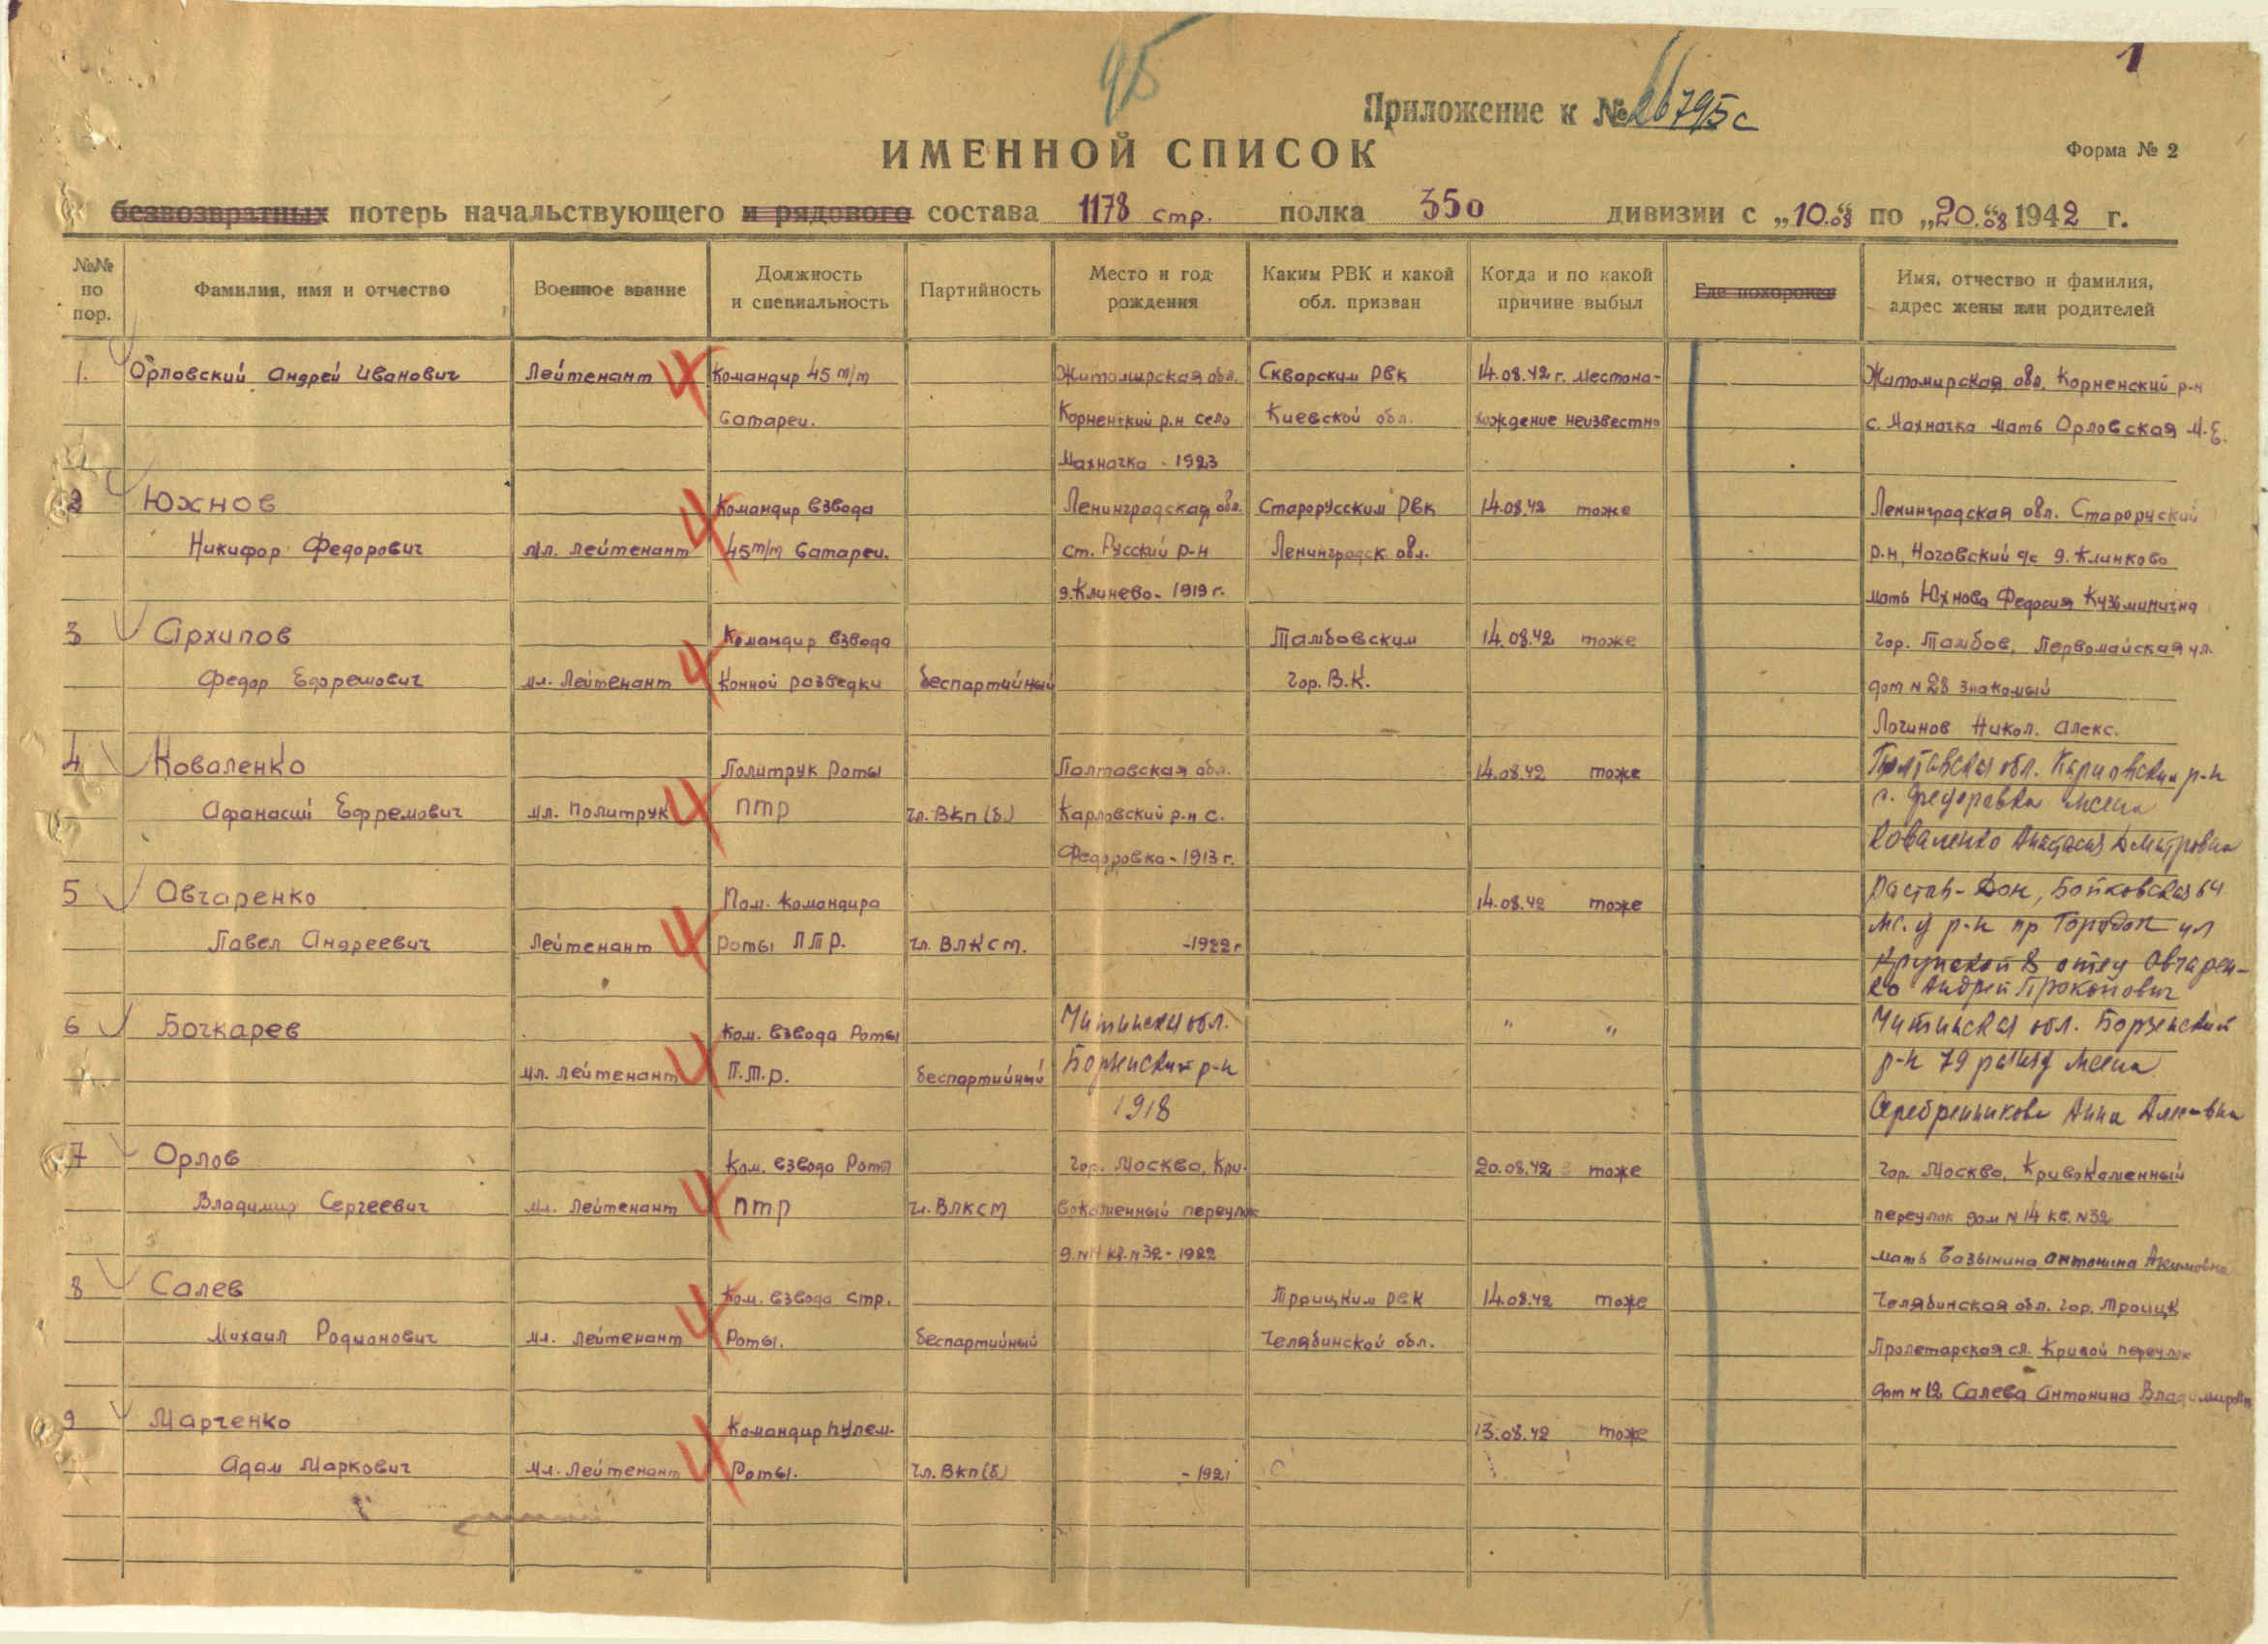 95
1
Приложение к № 26795с
ИМЕННОЙ СПИСОК
Форма № 2
безвозвратных потерь начальствующего и рядового состава 1178 стр. полка 350 дивизии с „10.08“ по „20.08“ 1942 г.
№№ по пор.
Фамилия, имя и отчество
Военное звание
Должность
и специальность
Партийность
Место и год
рождения
Каким РВК и какой
обл. призван
Когда и по какой
причине выбыл
Где похоронен
Имя, отчество и фамилия,
адрес жены или родителей
1. Орловский Андрей Иванович Лейтенант Командир 45 м/м Житомирская обл. Скворским РВК 14.08.42 г. Местона- Житомирская обл. Корненский р-н
батареи. Корненский р.н село Киевской обл. хождение неизвестно с. Махначка мать Орловская М.Е.
Махначка - 1923
2 Южнов Командир взвода Ленинградская обл. Старорусским РВК 14.08.42 тоже Ленинградская обл. Староруский
Никифор Федорович мл. лейтенант 45 м/м батареи. ст. Русский р-н Ленинградск. обл. р.н, Ноговский с/с д. Клинково
д. Клинево - 1919 г. мать Юхнова Федосия Кузьминична
3 Архипов Командир взвода Тамбовским 14.08.42 тоже гор. Тамбов, Первомайская ул.
Федор Ефремович мл. Лейтенант Конной разведки беспартийный Гор. В.К. дом N 28 знакомый
Логинов Никол. Алекс.
4 Коваленко Политрук Роты Полтавская обл. 14.08.42 тоже Полтавская обл. Карловский р-н
Афанасий Ефремович мл. Политрук ПТР чл. ВКП(б) Карловский р.н с. с. Федоровка жена
Федоровка - 1913 г. Коваленко Анастасия Дмитровна
5 Овчаренко Пом. Командира 14.08.42 тоже Растов-Дон, Бойковская 64
Павел Андреевич Лейтенант Роты ПТР. чл. ВЛКСМ. -1922 г р-н пр Городок ул
Крупской 8 отец Овчарен-
ко Андрей Прокопович
6 Бочкарев Ком. взвода Роты Читинская обл. " " Читинская обл. Борзенский
мл. лейтенант П.Т.Р. беспартийный Борзенский р-н р-н 79 разъезд жена
1918 Серебренникова Анна
7 Орлов Ком. взвода Роты гор. Москва, Кри- 20.08.42 тоже гор. Москва, Кривокаменный
Владимир Сергеевич мл. Лейтенант ПТР чл. ВЛКСМ вокаменный переулок переулок дом N 14 кв. N 32
д. N 14 кв. N 32 - 1922 мать Базынина Антонина Акимовна
8 Салев Ком. взвода стр. Троицким РВК 14.08.42 тоже Челябинская обл. гор. Троицк
Михаил Родионович мл. Лейтенант Роты. беспартийный Челябинской обл. Пролетарская сл. Кривой переулок
дом N 12 Салева Антонина Владимировна
9 Марченко Командир пулем. 13.08.42 тоже
Адам Маркович мл. Лейтенант Роты. чл. ВКП(б) - 1921